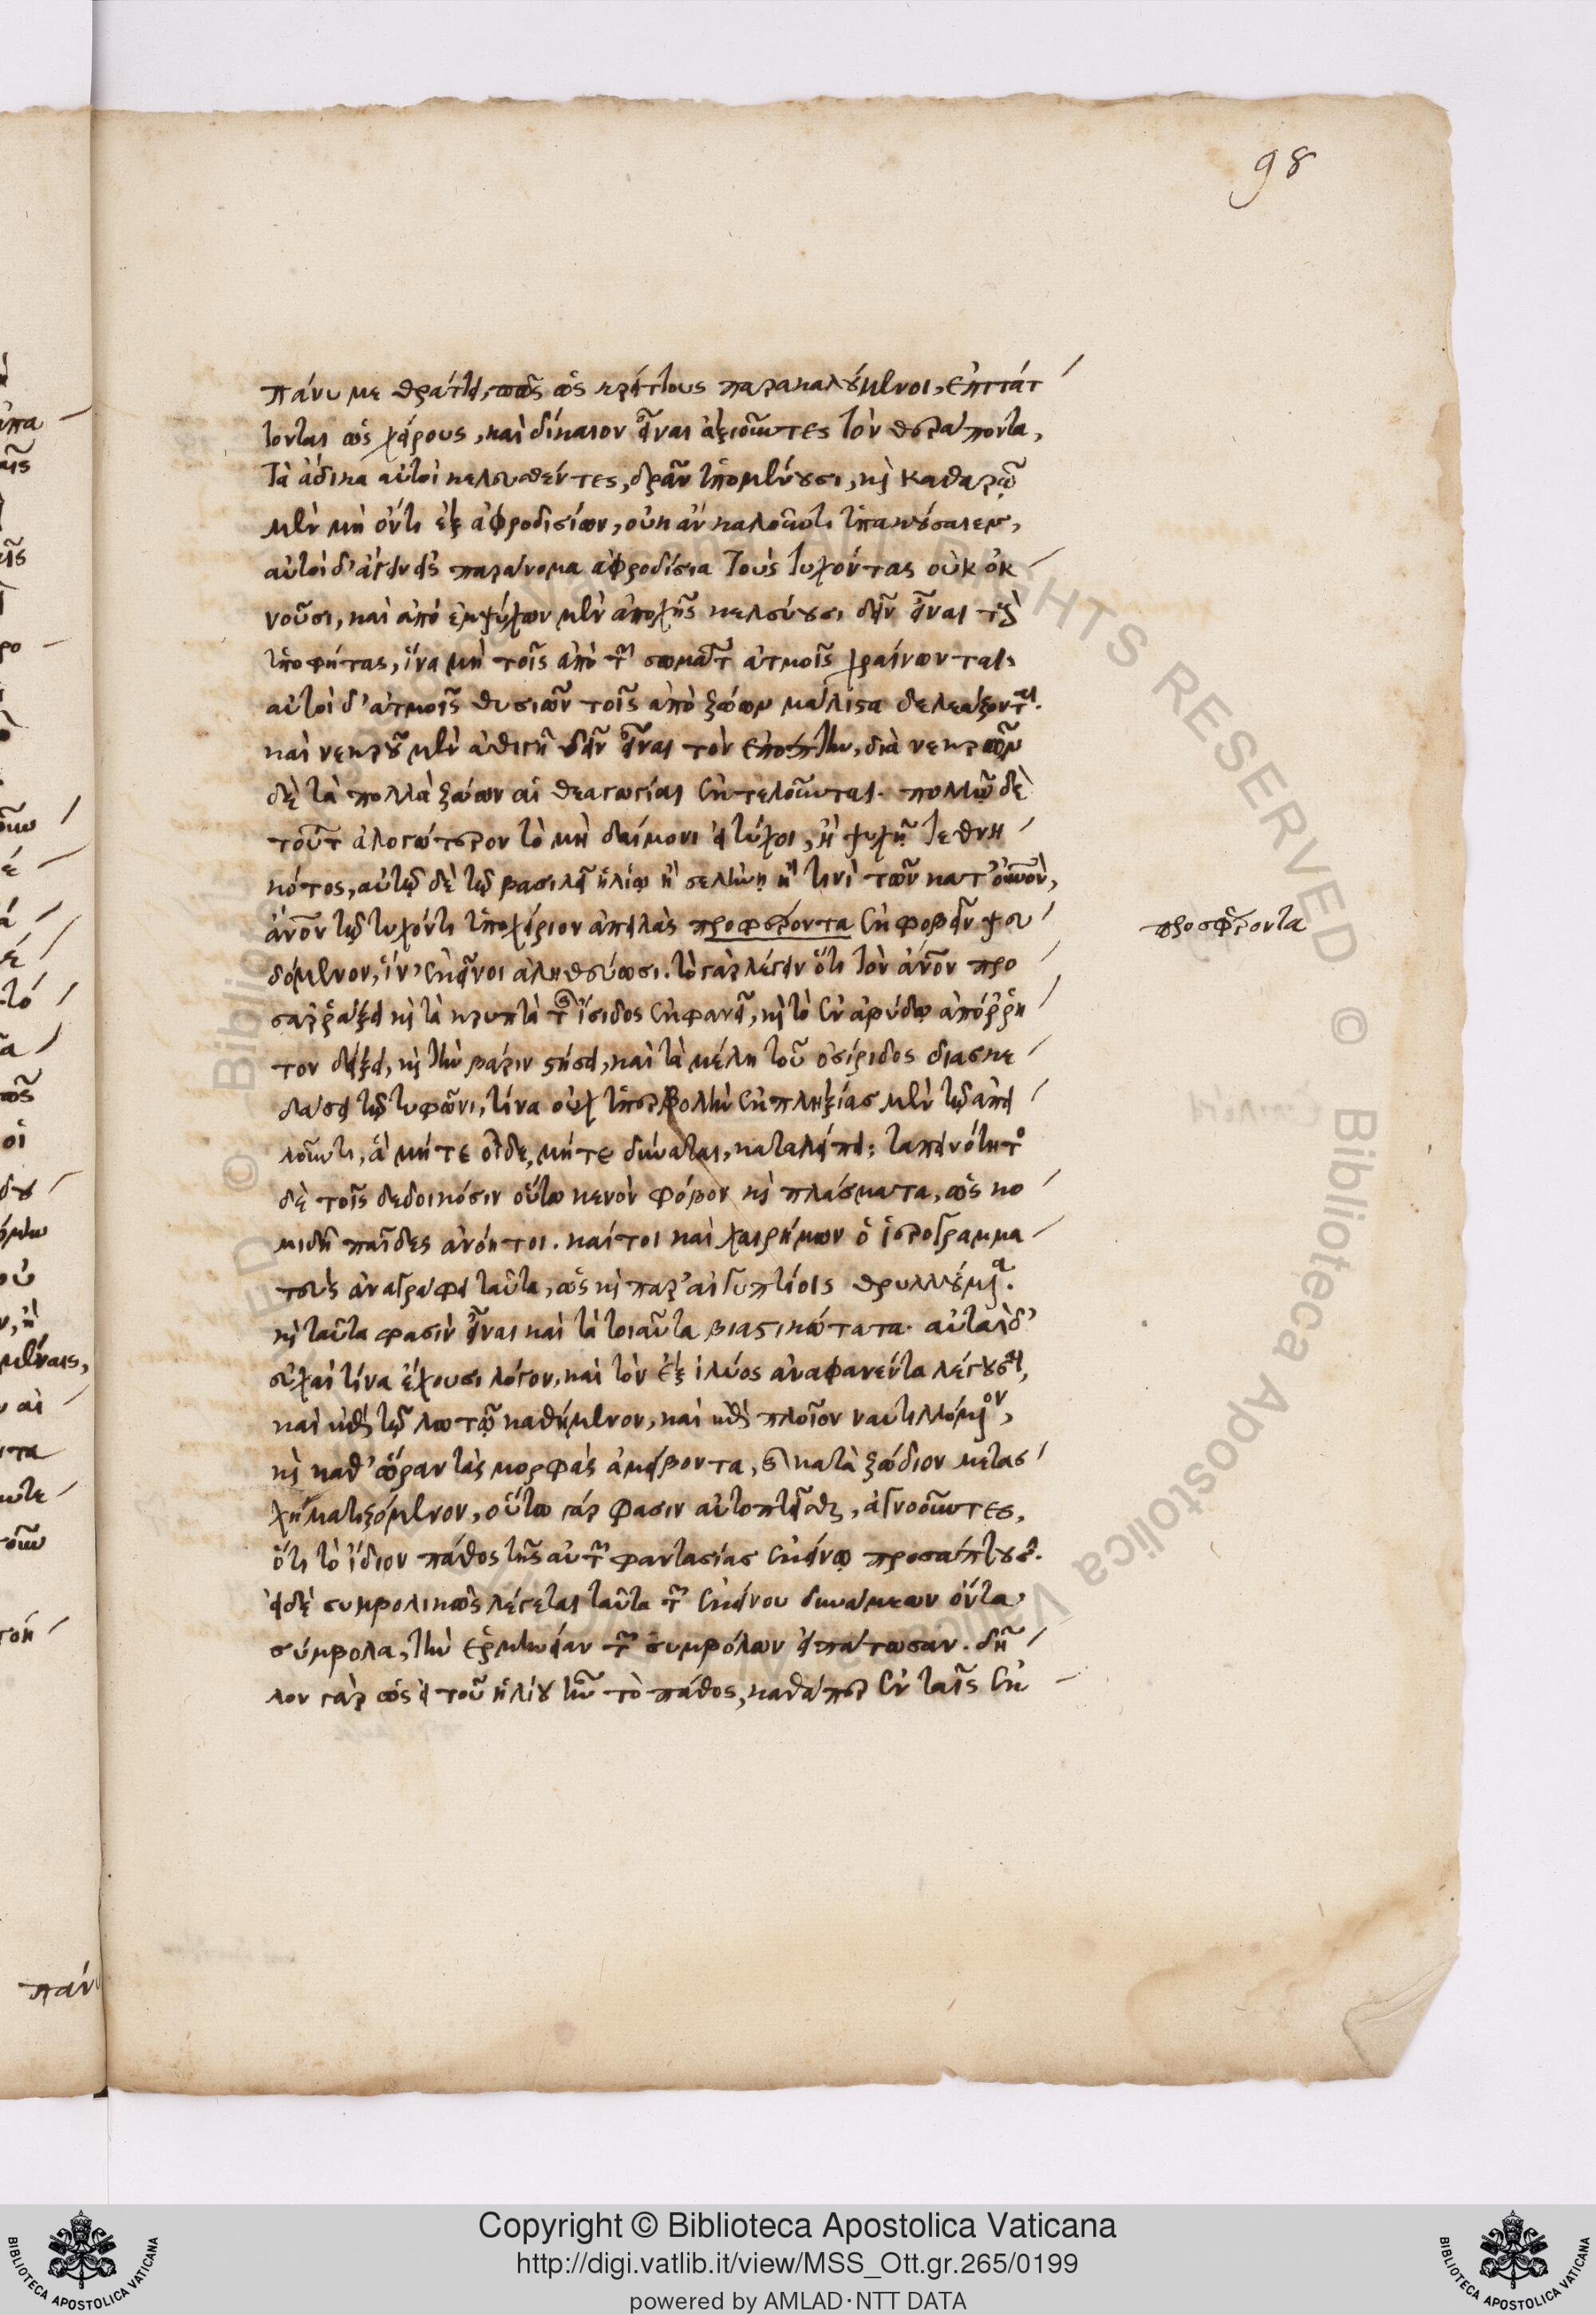 98
πάνυ με θράττει, πῶς ὡς κρείττους παρακαλούμενοι, ἐπιτάτ
τονται ὡς χείρους, καὶ δίκαιον εἶναι ἀξιοῦντες τὸν θεράποντα,
τὰ ἄδικα αὐτοὶ κελευσθέντες, δρᾶν ὑπομένουσι, καὶ καθαρῷ
μὲν μὴ ὄντι ἐξ ἀφροδισίων, οὐκ ἂν καλοῦντι ὑπακούσαιεν,
αὐτοὶ δ' ἄγειν εἰς παράνομα ἀφροδίσια τοὺς τυχόντας οὐκ ὀκ
νοῦσι, καὶ ἀπὸ ἐμψύχων μὲν ἀποχῆς κελεύουσι δεῖν εἶναι τοὺς
ὑποφήτας, ἵνα μὴ τοῖς ἀπὸ τῶν σωμάτων ἀτμοῖς χραίνωνται.
αὐτοὶ δ' ἀτμοῖς θυσιῶν τοῖς ἀπὸ ζώων μάλιστα δελεάζονται.
καὶ νεκροῦ μὲν ἀθιγῆ δεῖν εἶναι τὸν ἐπόπτην, διὰ νεκρῶν
δὲ τὰ πολλὰ ζώων αἱ θεαγωγίαι ἐκτελοῦνται. πολλῷ δὲ
τούτων ἀλογώτερον τὸ μὴ δαίμονι εἰ τύχοι, ἢ ψυχῇ τεθνη
κότος, αὐτῷ δὲ τῷ βασιλεῖ ἡλίῳ ἢ σελήνῃ ἤ τινι τῶν κατ' οὐρανὸν,
ἄνθρωπον τῷ τυχόντι ὑποχείριον ἀπειλὰς προφέροντα ἐκφοβεῖν ψευ
δόμενον, ἵν' ἐκεῖνοι ἀληθεύωσι. τὸ γὰρ λέγειν ὅτι τὸν οὐρανὸν προ
σαρράξει καὶ τὰ κρυπτὰ τῆς ἴσιδος ἐκφανεῖ, καὶ τὸ ἐν ἀβύδῳ ἀπόρρη
τον δείξει, καὶ τὴν βάριν στήσει, καὶ τὰ μέλη τοῦ ὀσίριδος διασκε
δάσει τῷ τυφῶνι, τίνα οὐχ ὑπερβολὴν ἐκπληξίας μὲν τῷ ἀπει
λοῦντι, ἃ μήτε οἶδε, μήτε δύναται, καταλείπει; ταπεινότητος
δὲ τοῖς δεδοικόσιν οὕτω κενὸν φόβον καὶ πλάσματα, ὡς κο
μιδῇ παῖδες ἀνόητοι. καίτοι καὶ χαιρήμων ὁ ἱερογραμμα
τεὺς ἀναγράφει ταῦτα, ὡς καὶ παρ' αἰγυπτίοις θρυλλούμενα.
καὶ ταῦτα φασὶν εἶναι καὶ τὰ τοιαῦτα βιαστικώτατα. αὐταὶ δ'
εὐχαὶ τίνα ἔχουσι λόγον, καὶ τὸν ἐξ ἰλύος ἀναφανέντα λέγουσαι,
καὶ ἐπὶ τῷ λωτῷ καθήμενον, καὶ ἐπὶ πλοῖον ναυτιλλόμενον,
καὶ καθ' ὥραν τὰς μορφὰς ἀμείβοντα, καὶ κατὰ ζώδιον μετασ
χηματιζόμενον, οὕτω γάρ φασιν αὐτοπτεῖσθαι, ἀγνοοῦντες,
ὅτι τὸ ἴδιον πάθος τῆς αὐτῶν φαντασίας ἐκείνῳ προσάπτουσι.
εἰ δὲ συμβολικῶς λέγεται ταῦτα τῶν ἐκείνου δυνάμεων ὄντα
σύμβολα, τὴν ἑρμηνείαν τῶν συμβόλων εἰπάτωσαν. δῆ
λον γὰρ ὡς εἰ τοῦ ἡλίου ἦν τὸ πάθος, καθάπερ ἐν ταῖς ἐκ
προσφέροντα
πάν
Copyright © Biblioteca Apostolica Vaticana
http://digi.vatlib.it/view/MSS_Ott.gr.265/0199
powered by AMLAD·NTT DATA
BIBLIOTECA APOSTOLICA VATICANA
BIBLIOTECA APOSTOLICA VATICANA